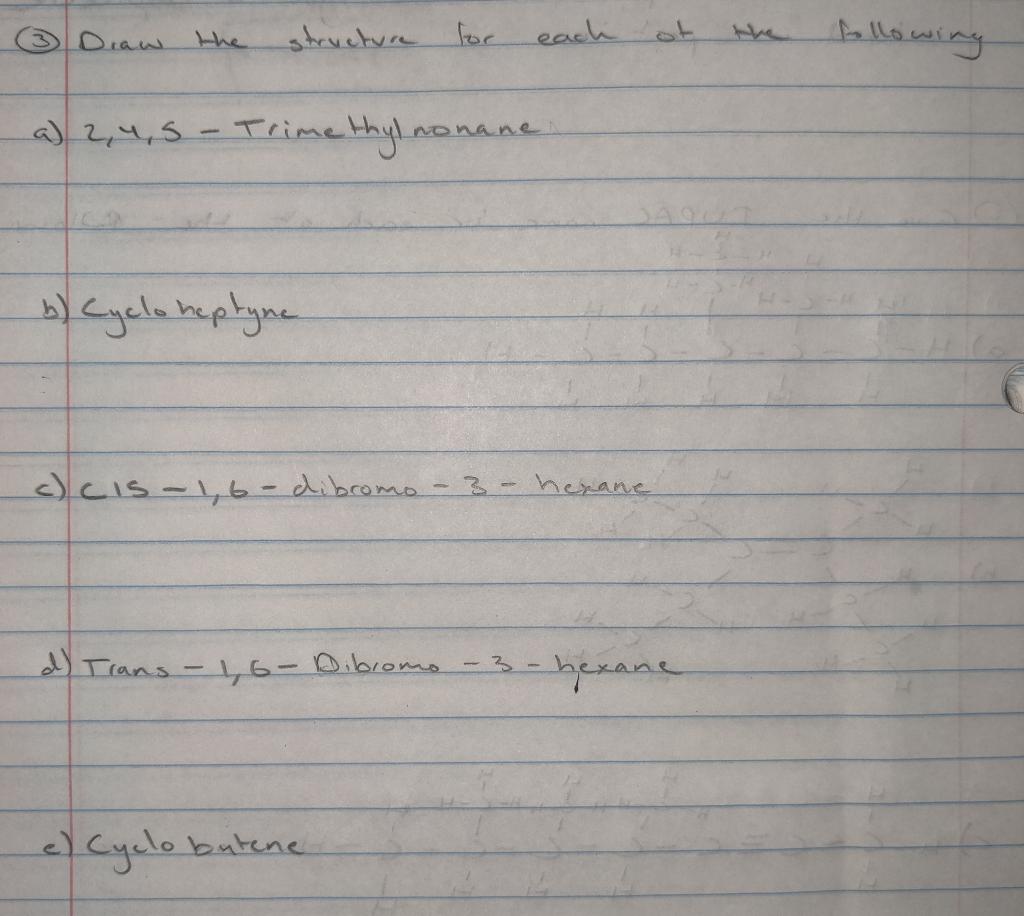 ③ Draw the structure for each of the following
a) 2,4,5 - Trimethylnonane
b) Cycloheptyne
c) CIS - 1,6 - dibromo - 3 - hexane
d) Trans - 1,6 - Dibromo - 3 - hexane
e) Cyclobutene